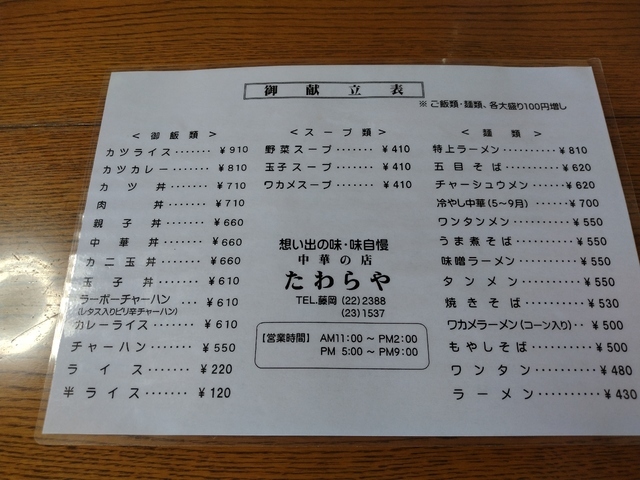 御献立表
※ ご飯類・麺類、各大盛り100円増し
< 御飯類 >
カツライス‥‥‥ ¥910
カツカレー‥‥‥ ¥810
カツ丼‥‥‥ ¥710
肉丼‥‥‥ ¥710
親子丼‥‥‥ ¥660
中華丼‥‥‥ ¥660
カニ玉丼‥‥‥ ¥660
玉子丼‥‥‥ ¥610
ラーポーチャーハン ‥‥ ¥610
(レタス入りピリ辛チャーハン)
カレーライス‥‥‥ ¥610
チャーハン‥‥‥ ¥550
ライス‥‥‥ ¥220
半ライス‥‥‥ ¥120
< スープ類 >
野菜スープ‥‥‥ ¥410
玉子スープ‥‥‥ ¥410
ワカメスープ‥‥‥ ¥410
想い出の味・味自慢
中華の店
たわらや
TEL.藤岡 (22)2388
(23)1537
【営業時間】 AM11:00 ~ PM2:00
PM 5:00 ~ PM9:00
< 麺類 >
特上ラーメン‥‥‥‥ ¥810
五目そば‥‥‥‥ ¥620
チャーシュウメン‥‥‥ ¥620
冷やし中華(5~9月) ‥‥ ¥700
ワンタンメン‥‥‥‥ ¥550
うま煮そば‥‥‥‥ ¥550
味噌ラーメン‥‥‥‥ ¥550
タンメン‥‥‥‥ ¥550
焼きそば‥‥‥‥ ¥530
ワカメラーメン(コーン入り)‥ ¥500
もやしそば‥‥‥‥ ¥500
ワンタン‥‥‥‥ ¥480
ラーメン‥‥‥‥ ¥430